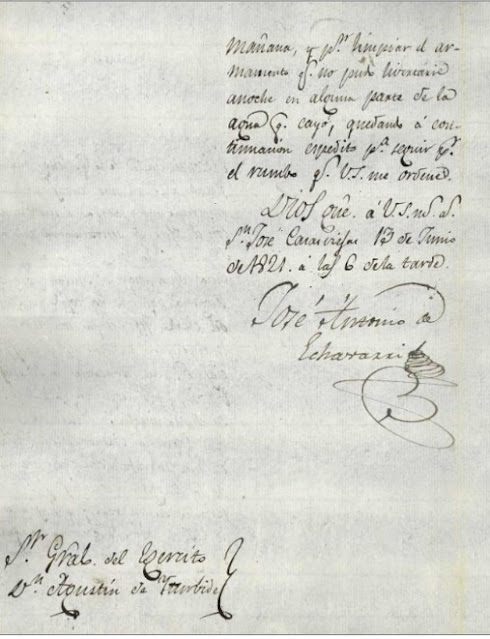 mañana, y pª limpiar el ar-
mamento q. no pudo livertarse
anoche en alguna parte de la
agua q. cayó, quedando á con-
tinuación expedito pª seguir pr.
el rumbo q. V.S. me ordene.
Dios gûe. á V.S. ms. as.
Sn. José Casas viejas 13 de Junio
de 1821. á las 6 de la tarde.
José Antonio de
Echavarri
Sr. Gral. del Egercito
Dn. Agustin de Iturbide